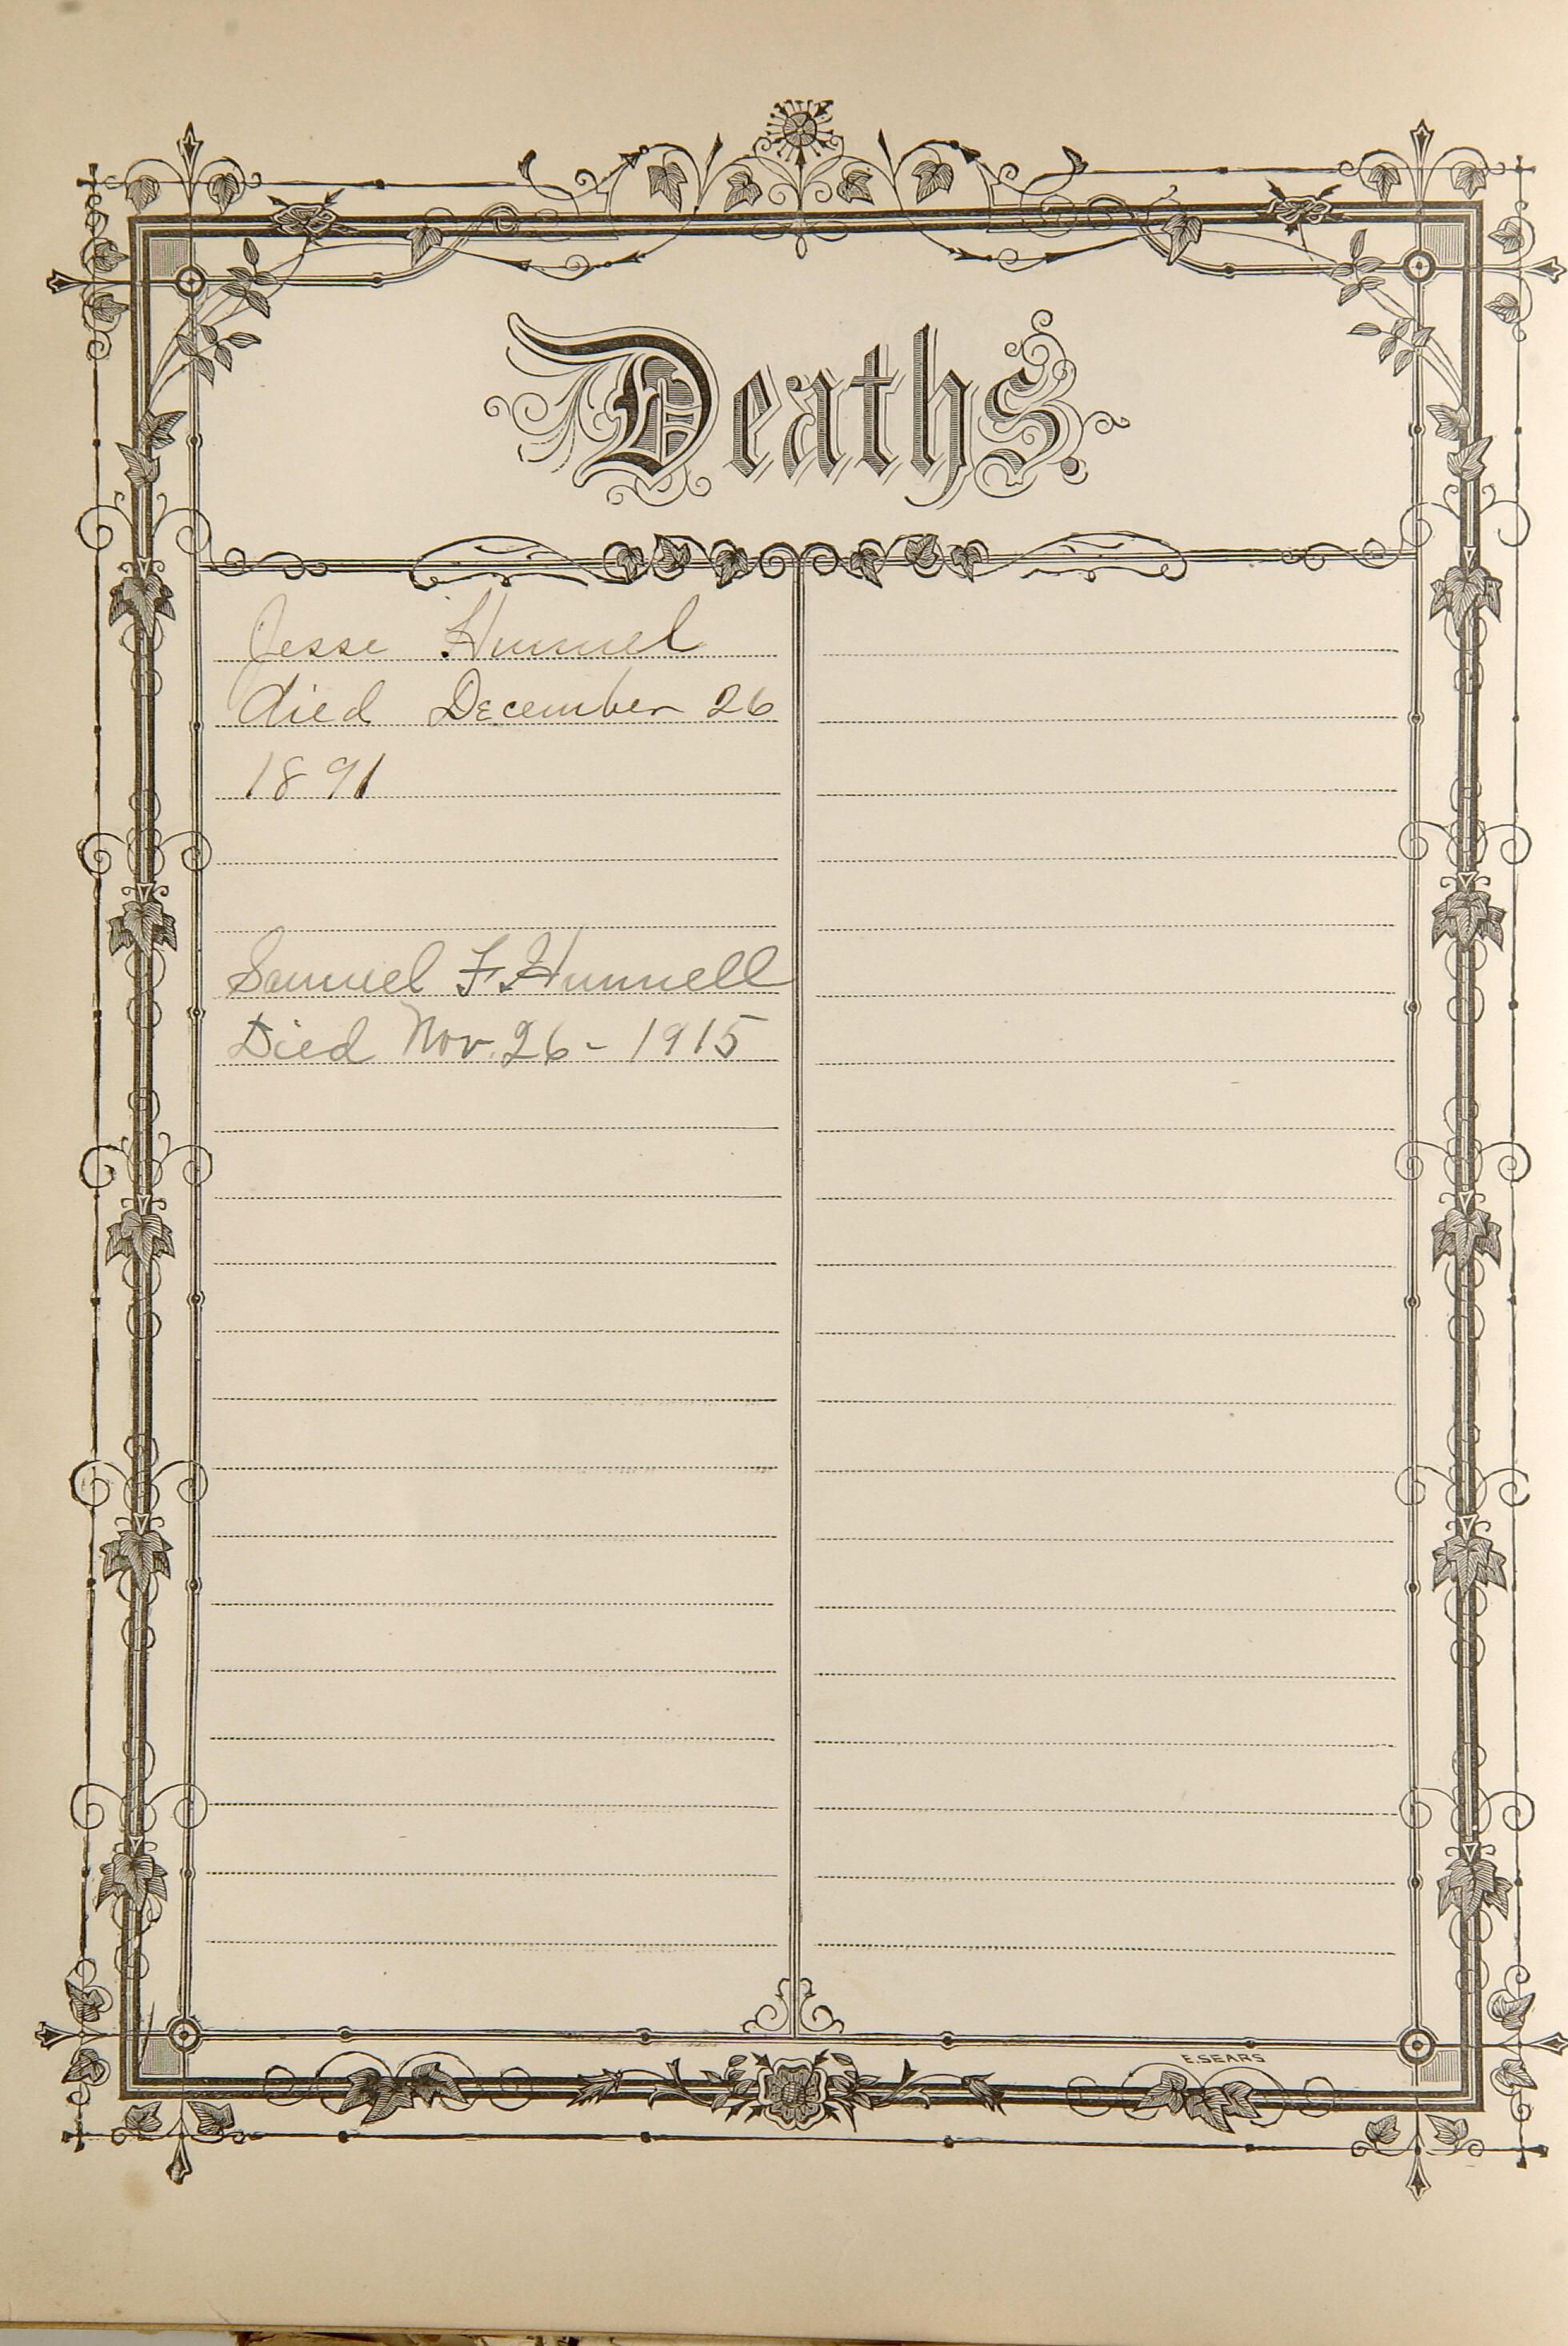 Deaths.
Jesse Hunnel
died December 26
1891
Samuel F. Hunnell
Died Nov. 26 - 1915
E.SEARS